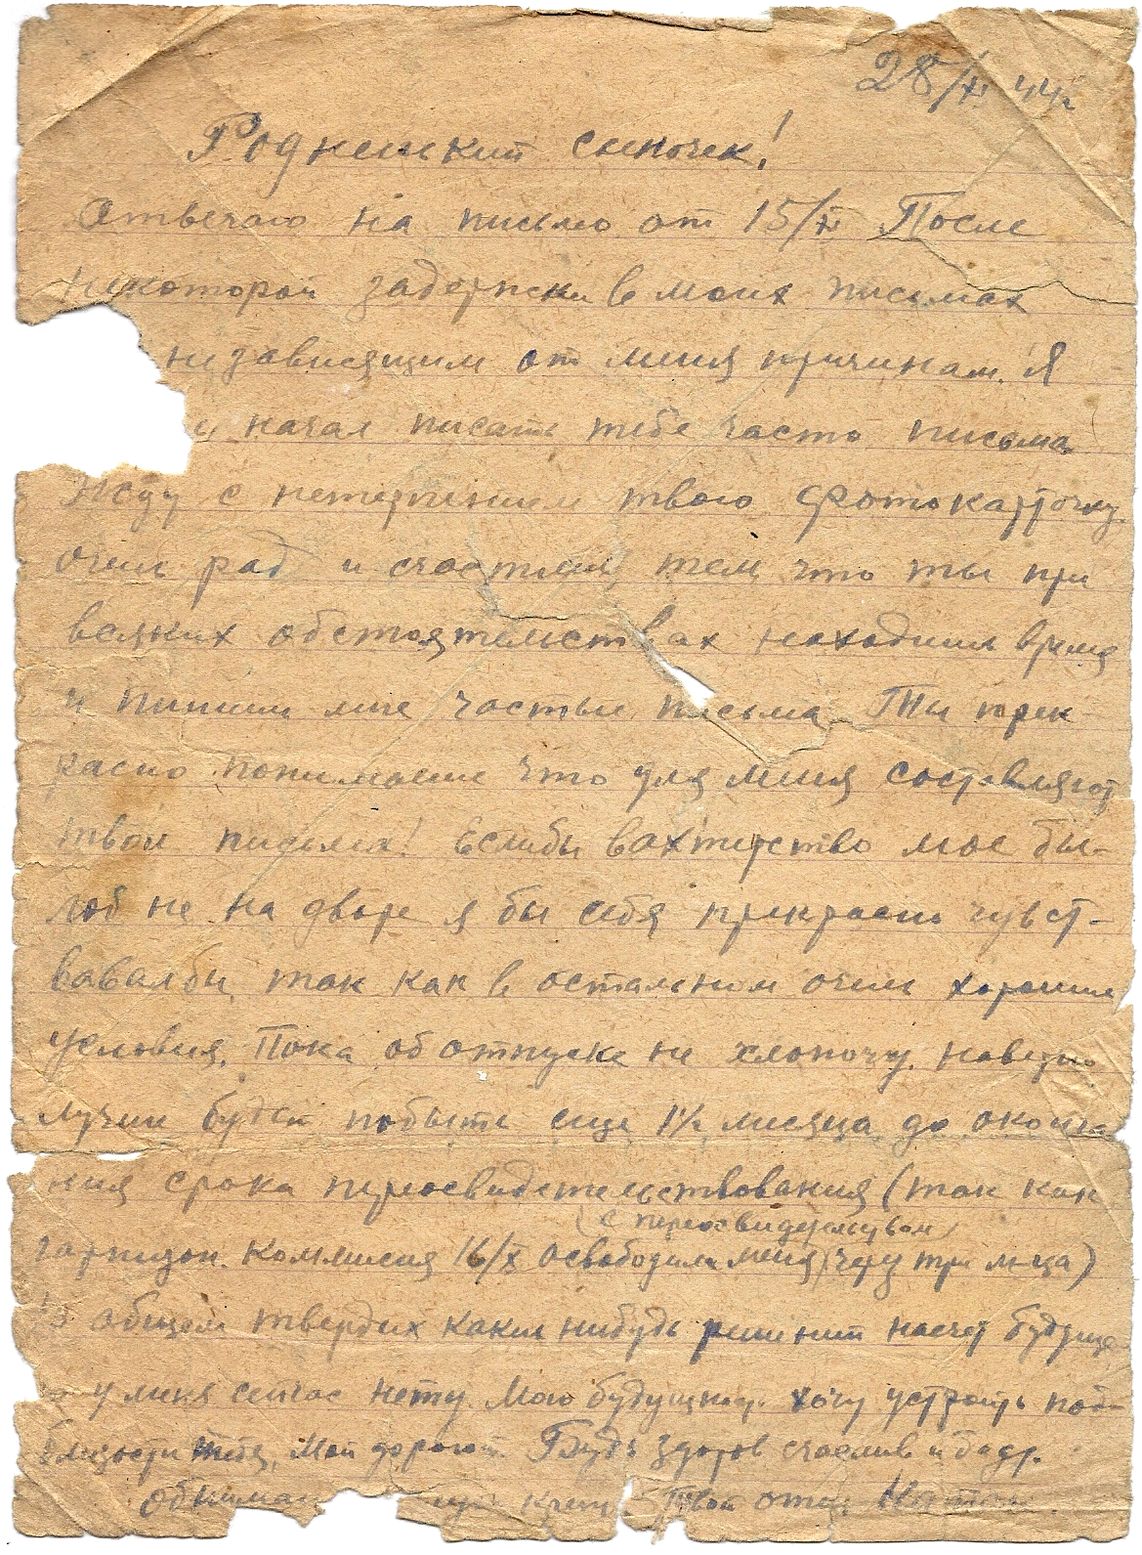 28/XI 44г
Родненький сыночек!
Отвечаю на письмо от 15/XI После
некоторой задержки в моих письмах
независящим от меня причинам. Я
начал писать тебе часто письма
Жду с нетерпением твою фотокарточку.
Очень рад и счастлив тем что ты при
всяких обстоятельствах находишь время
и пишешь мне частые письма. Ты прек-
расно понимаешь что для меня составляют
твои письма! Еслибы вахтерство мое бы-
лоб не на дворе я бы себя прекрасно чувст-
вовалбы, так как в остальном очень хорошие
условия. Пока об отпуске не хлопочу.
лучше будет побыть еще 1½ месяца до оконча
ния срока переосвидетельствования (так как
(с переосвидетельством)
гарнизон. коммисия 16/X освободила меня (через три м-ца)
В общем твердых каких нибудь решений насчет будуще
у меня сейчас нету. Мою будущность хочу устроить поб-
близости тебя, мой дорогой. Будь здоров счастлив и бодр.
Обнимаю крепко Твой отец